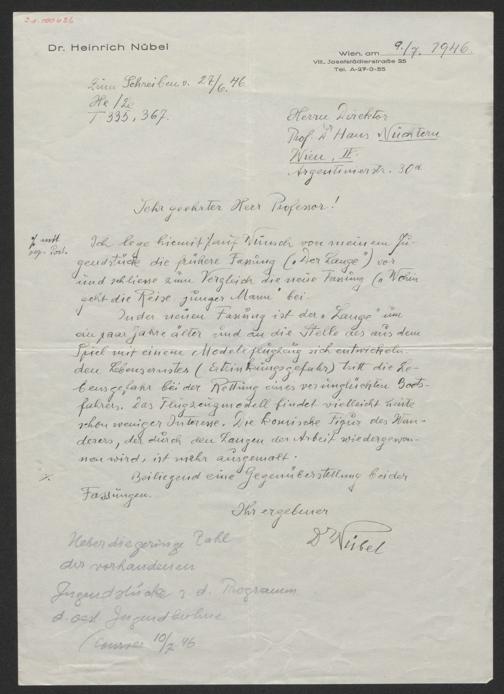 Dr. Heinrich Nübel
Wien, am 9./7. 1946.
VIII, Josefstädterstraße 25
Tel. A-27-0-55
Zum Schreiben v. 27/6. 46
He/Ze
T 335, 367.
Herrn Direktor
Prof. Dr Hans Nüchtern
Wien, IV.
Argentinierstr. 30a
Sehr geehrter Herr Professor!
Ich lege hiemit auf Wunsch von meinem Ju-
gendstücke die frühere Fassung („Der Lange") vor
und schliesse zum Vergleich die neue Fassung („Wohin
geht die Reise junger Mann" bei.
In der neuen Fassung ist der „Lange" um
ein paar Jahre älter und an die Stelle des aus dem
Spiel mit einem Modellflugzeug sich entwickeln-
den Lebensernstes (Ertrinkungsgefahr) tritt die Le-
bensgefahr bei der Rettung eines verunglückten Boots-
fahrers. Das Flugzeugmodell findet vielleicht heute
schon weniger Interesse. Die komische Figur des
der durch den Langen der Arbeit wiedergewon-
nen wird, ist mehr ausgemalt.
Beiliegend eine Gegenüberstellung beider
Fassungen.
Ihr ergebner
Dr Nübel
Ueber die geringe Zahl
der vorhandenen
Jugendstücke d. Programm
d. Jugendbühne
10/7. 46